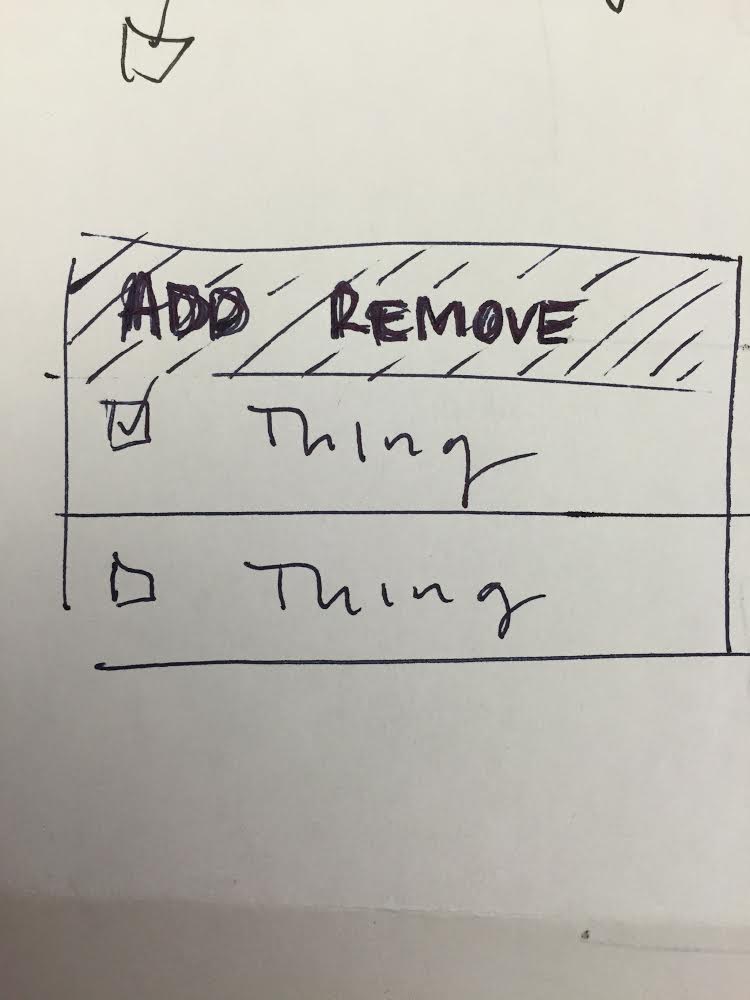 ADD REMOVE
Thing
Thing